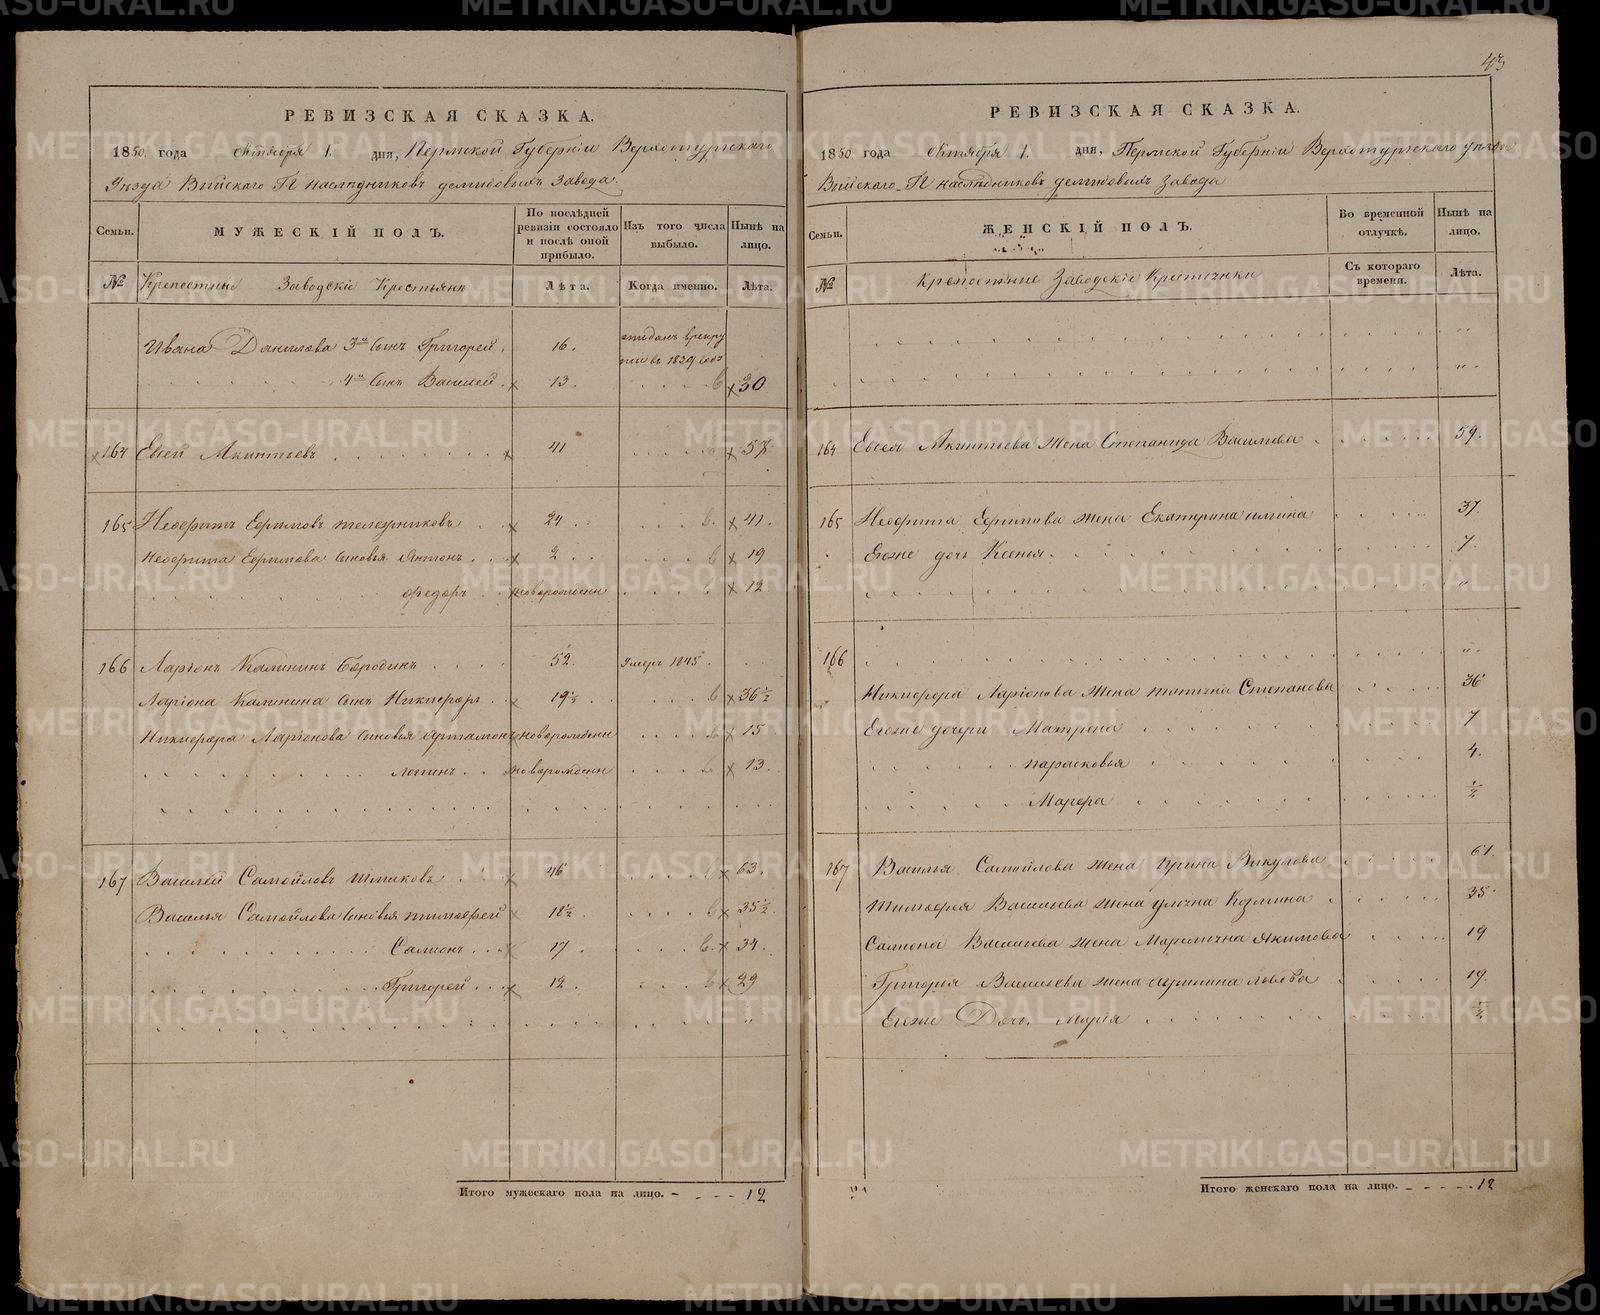 РЕВИЗСКАЯ СКАЗКА.
1850 года Октября 1. дня, Пермской Губернiи Верхотурскаго
Уѣзда Выйскаго Гг наслѣдниковъ демидовыхъ завода.
Семьи.
МУЖЕСКІЙ ПОЛЪ.
По послѣдней ревизіи состояло и послѣ оной прибыло.
Изъ того числа выбыло.
Нынѣ на лицо.
№ Крепостные Заводскiе Крестьяне
Лѣта. Когда именно. Лѣта.
Ивана Данилова 3й сынъ Григорей. 16. отъданъ врекру
ты въ 1839 годъ
4й сынъ Василей 13. 30
164 Евсей Акинтьевъ 41 57
165 Неофитъ Ефимовъ 24 41.
Неофита Ефимова сыновья Антонъ 2 19
федоръ новорожденъ 12
166 Ларiонъ Калининъ Бородинъ 52. Умеръ 1845
Ларiона Калинина сынъ Никифоръ 19½ 36½
Никифора Ларiонова сыновья Артамонъ новорожденъ 15
новорожденъ 13.
167 Василей Самойловъ Шмаковъ 46 63.
Василья Самойлова сыновья тимофей 18½ 35½
Самсонъ 17 34.
Григорей 12. 29
Итого мужескаго пола на лицо. 12
43
РЕВИЗСКАЯ СКАЗКА.
1850 года Октября 1. дня. Пермской Губернiи Верхотурскаго уѣзда
Выйскаго Гг наслѣдниковъ демидовыхъ завода
Семьи.
ЖЕНСКІЙ ПОЛЪ.
Во временной отлучкѣ.
Нынѣ на лицо.
№ Крепостные Заводскiе Крестьянки
Съ котораго времени. Лѣта.
164 Евсея Акинтьева жена Степанида Васильева 59.
165 Неофита Ефимова жена Екатерина 37.
Егоже дочь Ксенья. 7.
166
Никифора Ларiонова жена Степанова 36
Егоже дочери Матрена 7
парасковья 4.
Марфа ½
167 Василья Самойлова жена Ирина Викулова 61.
Тимофея Васильева жена Козмина 35
Самсона Васильева жена Якимова 19
Григорья Васильева жена Львова 19.
Егоже Дочь Марiя ½
Итого женскаго пола на лицо. 12
METRIKI.GASO-URAL.RU